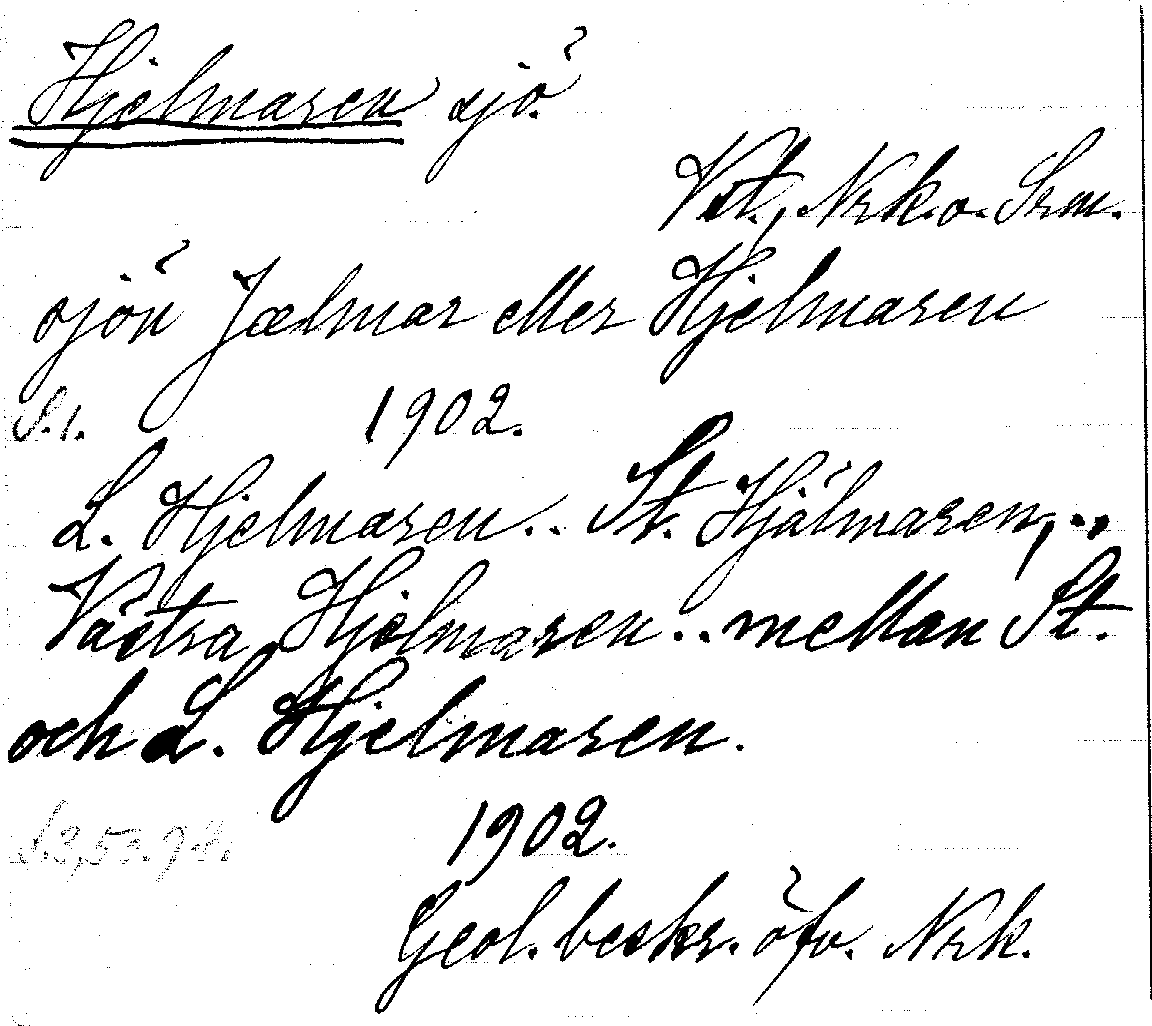 Hjelmaren sjö.
Vstm., Nrk. o. Srm.
sjön Jælmar eller Hjelmaren
S. 1. 1902.
L. Hjelmaren .. St. Hjälmaren, ..
Västra Hjelmaren .. mellan St.
och L. Hjelmaren.
S. 3, 5 1902.
Geol. beskr. öfv. Nrk.